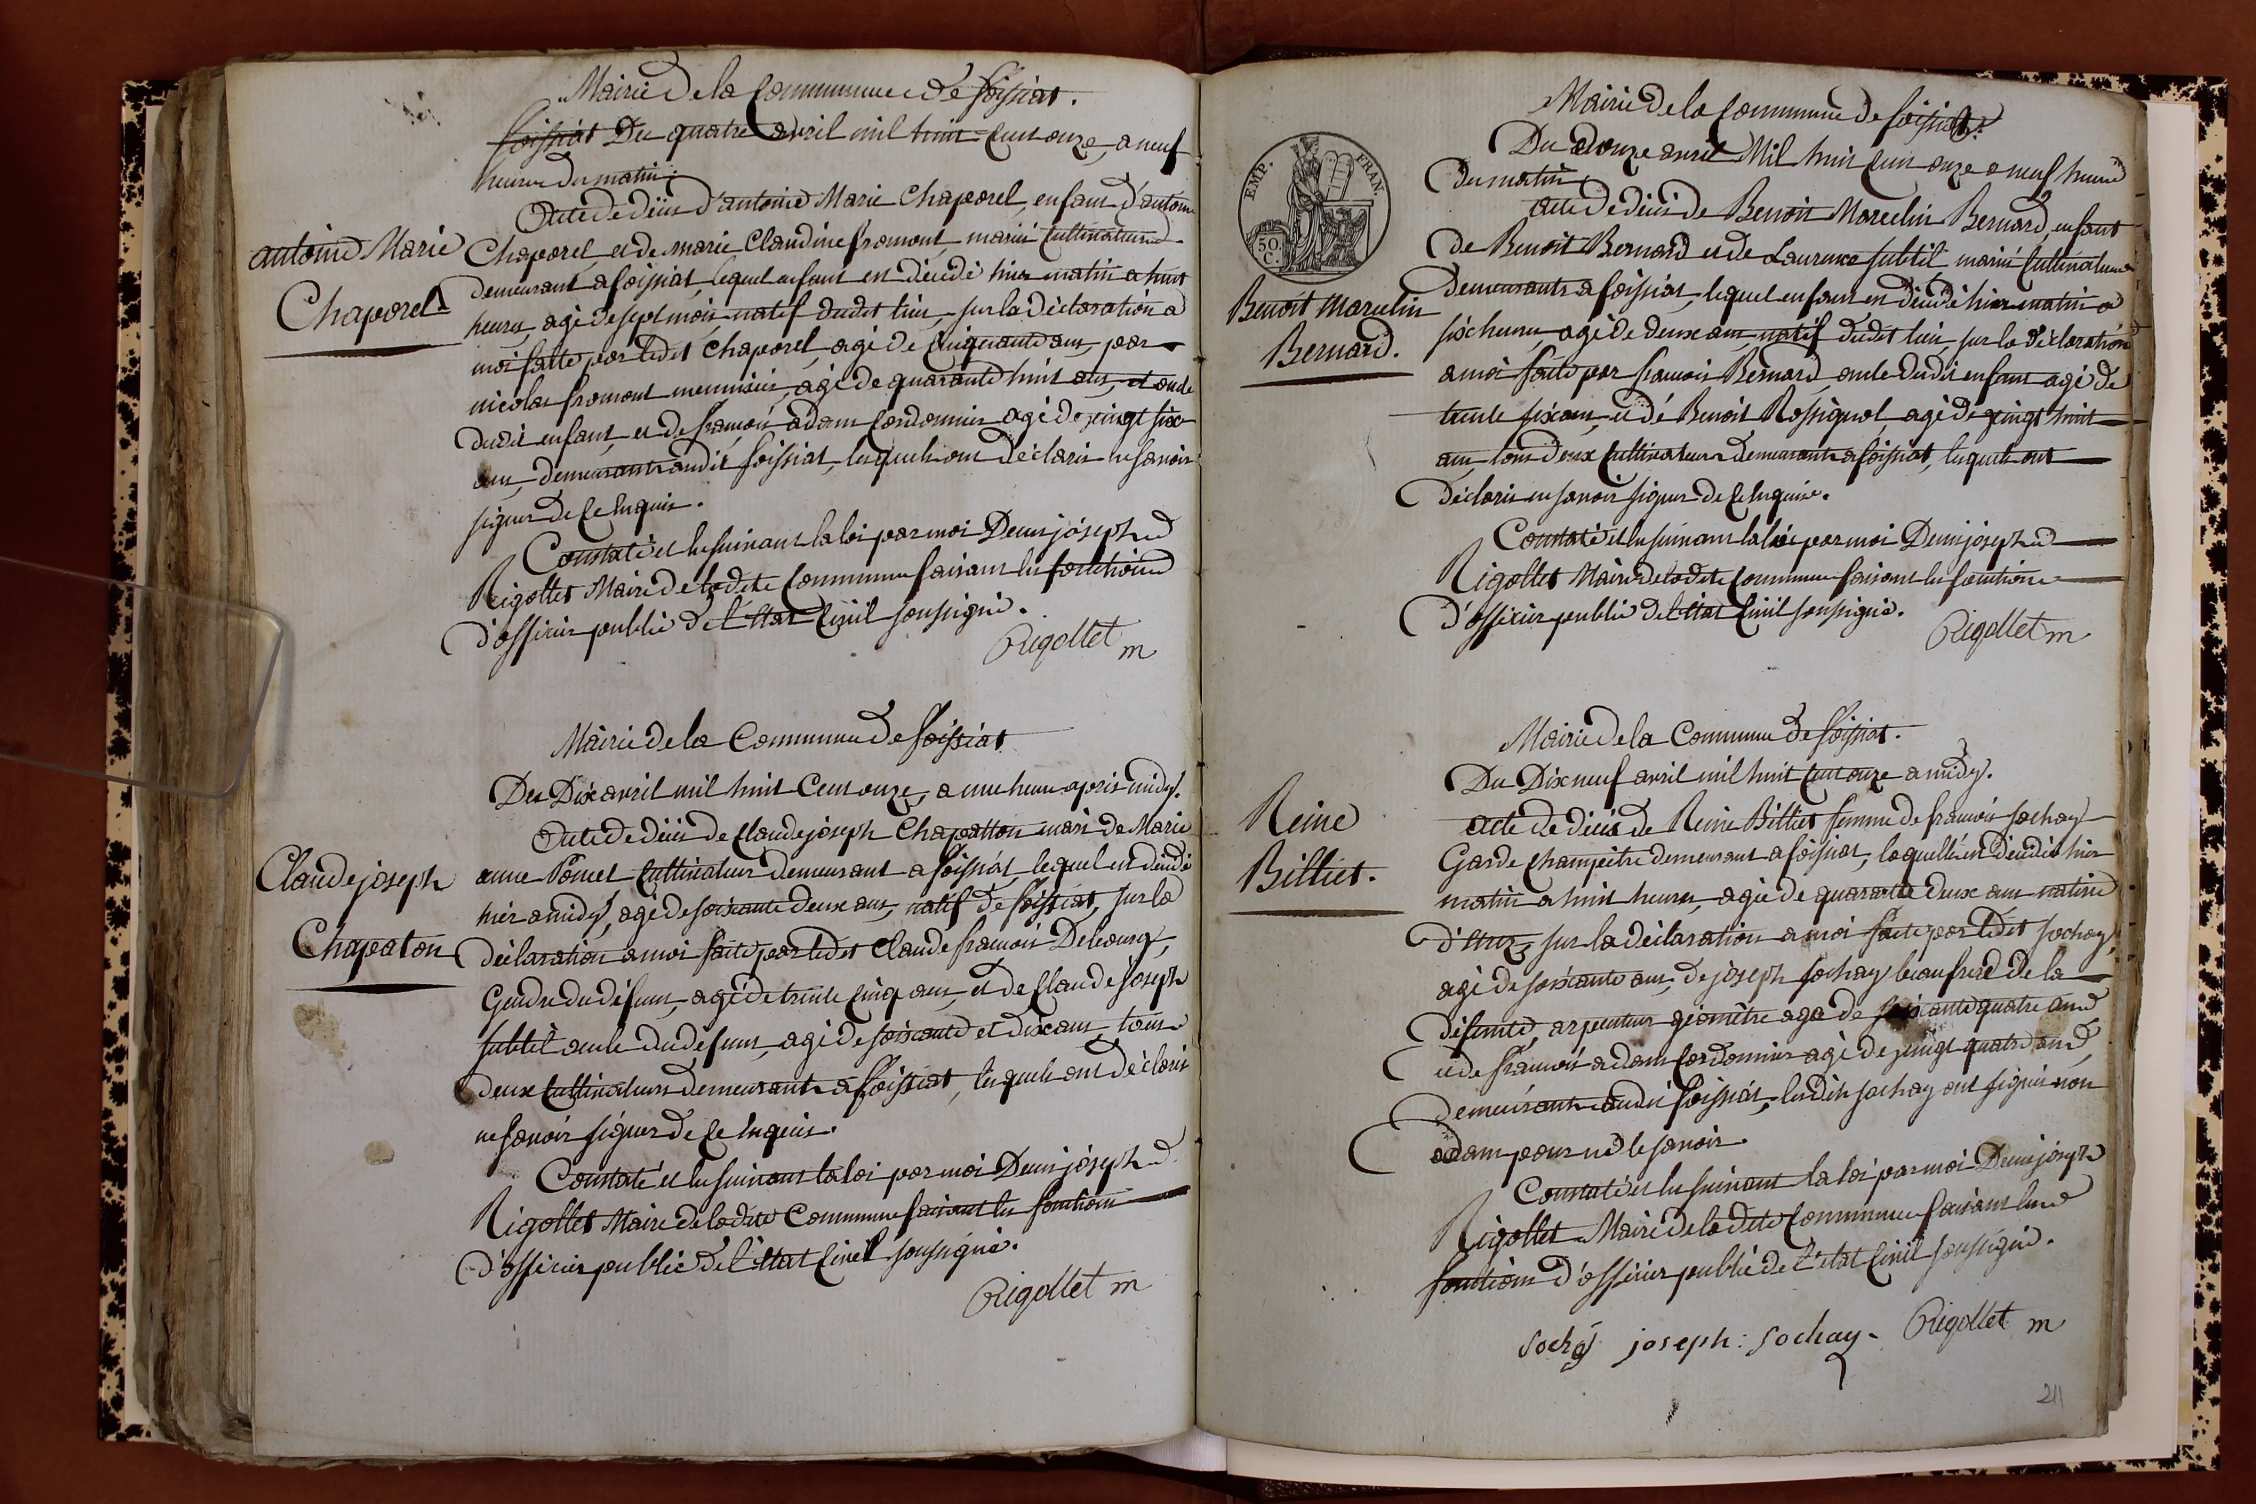 Mairie de la Commune de foissiat.
foissiat Du quatre avril mil huit Cent onze, a neuf
heures du matin.
Acte de décés d'antoine Marie Chaporel, enfant d'antoine
antoine Marie
Chaporel
Chaporel et de marie Claudine fromont mariés Cultivateurs
demeurant a foissiat, lequel enfant est décédé hier matin a huit
heures, agé de sept mois, natif dudit lieu, sur la déclaration a
moi faite par ledit Chaporel, agé de Cinquante ans, par
nicolas fromont menuisier, agé de quarante huit ans, et oncle
dudit enfant, et de françois adam Cordonnier agé de vingt six
ans, demeurants audit foissiat, lesquels ont déclaré ne savoir
signer de Ce Enquis.
Constaté et lu suivant la loi par moi Denis joseph
Rigollet Maire de ladite Commune faisant les fonctions
d'officier public de l'Etat Civil soussigné.
Rigollet m
Mairie de la Commune de foissiat
Du Dix avril mil huit Cent onze, a une heure après midy.
Acte de décés de Claude joseph Chapatton mari de Marie
Claude joseph
Chapaton
anne Poncet Cultivateur demeurant a foissiat, lequel est décédé
hier a midy, agé de soixante deux ans, natif de foissiat, sur la
déclaration a moi faite par ledit Claude françois Debourg,
Gendre du défunt, agé de trente Cinq ans, et de Claude joseph
subtil oncle du defunt, agé de soixante et dix ans, tous
deux Cultivateurs demeurants a foissiat, lesquels ont déclaré
ne savoir signer de Ce Enquis.
Constaté et lu suivant la loi par moi Denis joseph
Rigollet Maire de ladite Commune faisant les fonctions
d'officier public de l'état Civil soussigné.
Rigollet m
EMP. FRAN.
50. C.
Mairie de la Commune de foissiat.
Du Douze avril Mil huit Cent onze a neuf heures
du matin
acte de décés de Benoit Marcelin Bernard, enfant
Benoit Marcelin
Bernard.
de Benoit Bernard et de Laurence subtil mariés Cultivateurs
demeurants a foissiat, lequel enfant est décédé hier matin a
six heures, agé de deux ans, natif dudit lieu, sur la déclaration
a moi faite par françois Bernard, oncle dudit enfant agé de
trente six ans, et de Benoit Rossignol, agé de vingt huit
ans, tous deux Cultivateurs demeurants a foissiat, lesquels ont
déclaré ne savoir signer de Ce Enquis.
Constaté et lu suivant la loi par moi Denis joseph
Rigollet Maire de ladite Commune faisant les fonctions
d'officier public de l'état Civil soussigné.
Rigollet m
Mairie de la Commune de foissiat.
Du Dix neuf avril mil huit Cent onze a midy.
acte de décés de Reine Billiet femme de françois sochay
Reine
Billiet.
Garde Champêtre demeurant a foissiat, laquelle est décédée hier
matin a huit heures, agée de quarante deux ans native
d'Etrez, sur la déclaration a moi faite par ledit sochay
agé de soixante ans, de joseph sochay beaufrere de la
défunte, arpenteur géomètre agé de soixante quatre ans
et de françois adam Cordonnier agé de vingt quatre ans
demeurants audit foissiat, lesdits sochay ont signé non
adam pour ne le savoir.
Constaté et lu suivant la loi par moi Denis joseph
Rigollet Maire de ladite Commune faisant les
fonctions d'officier public de l'état Civil soussigné.
sochay joseph : sochay Rigollet m
211